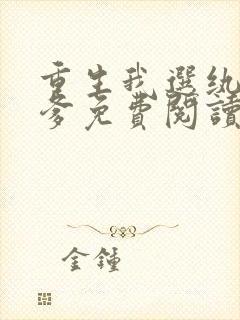 重生我選紈
爹免費閱讀
金鍾